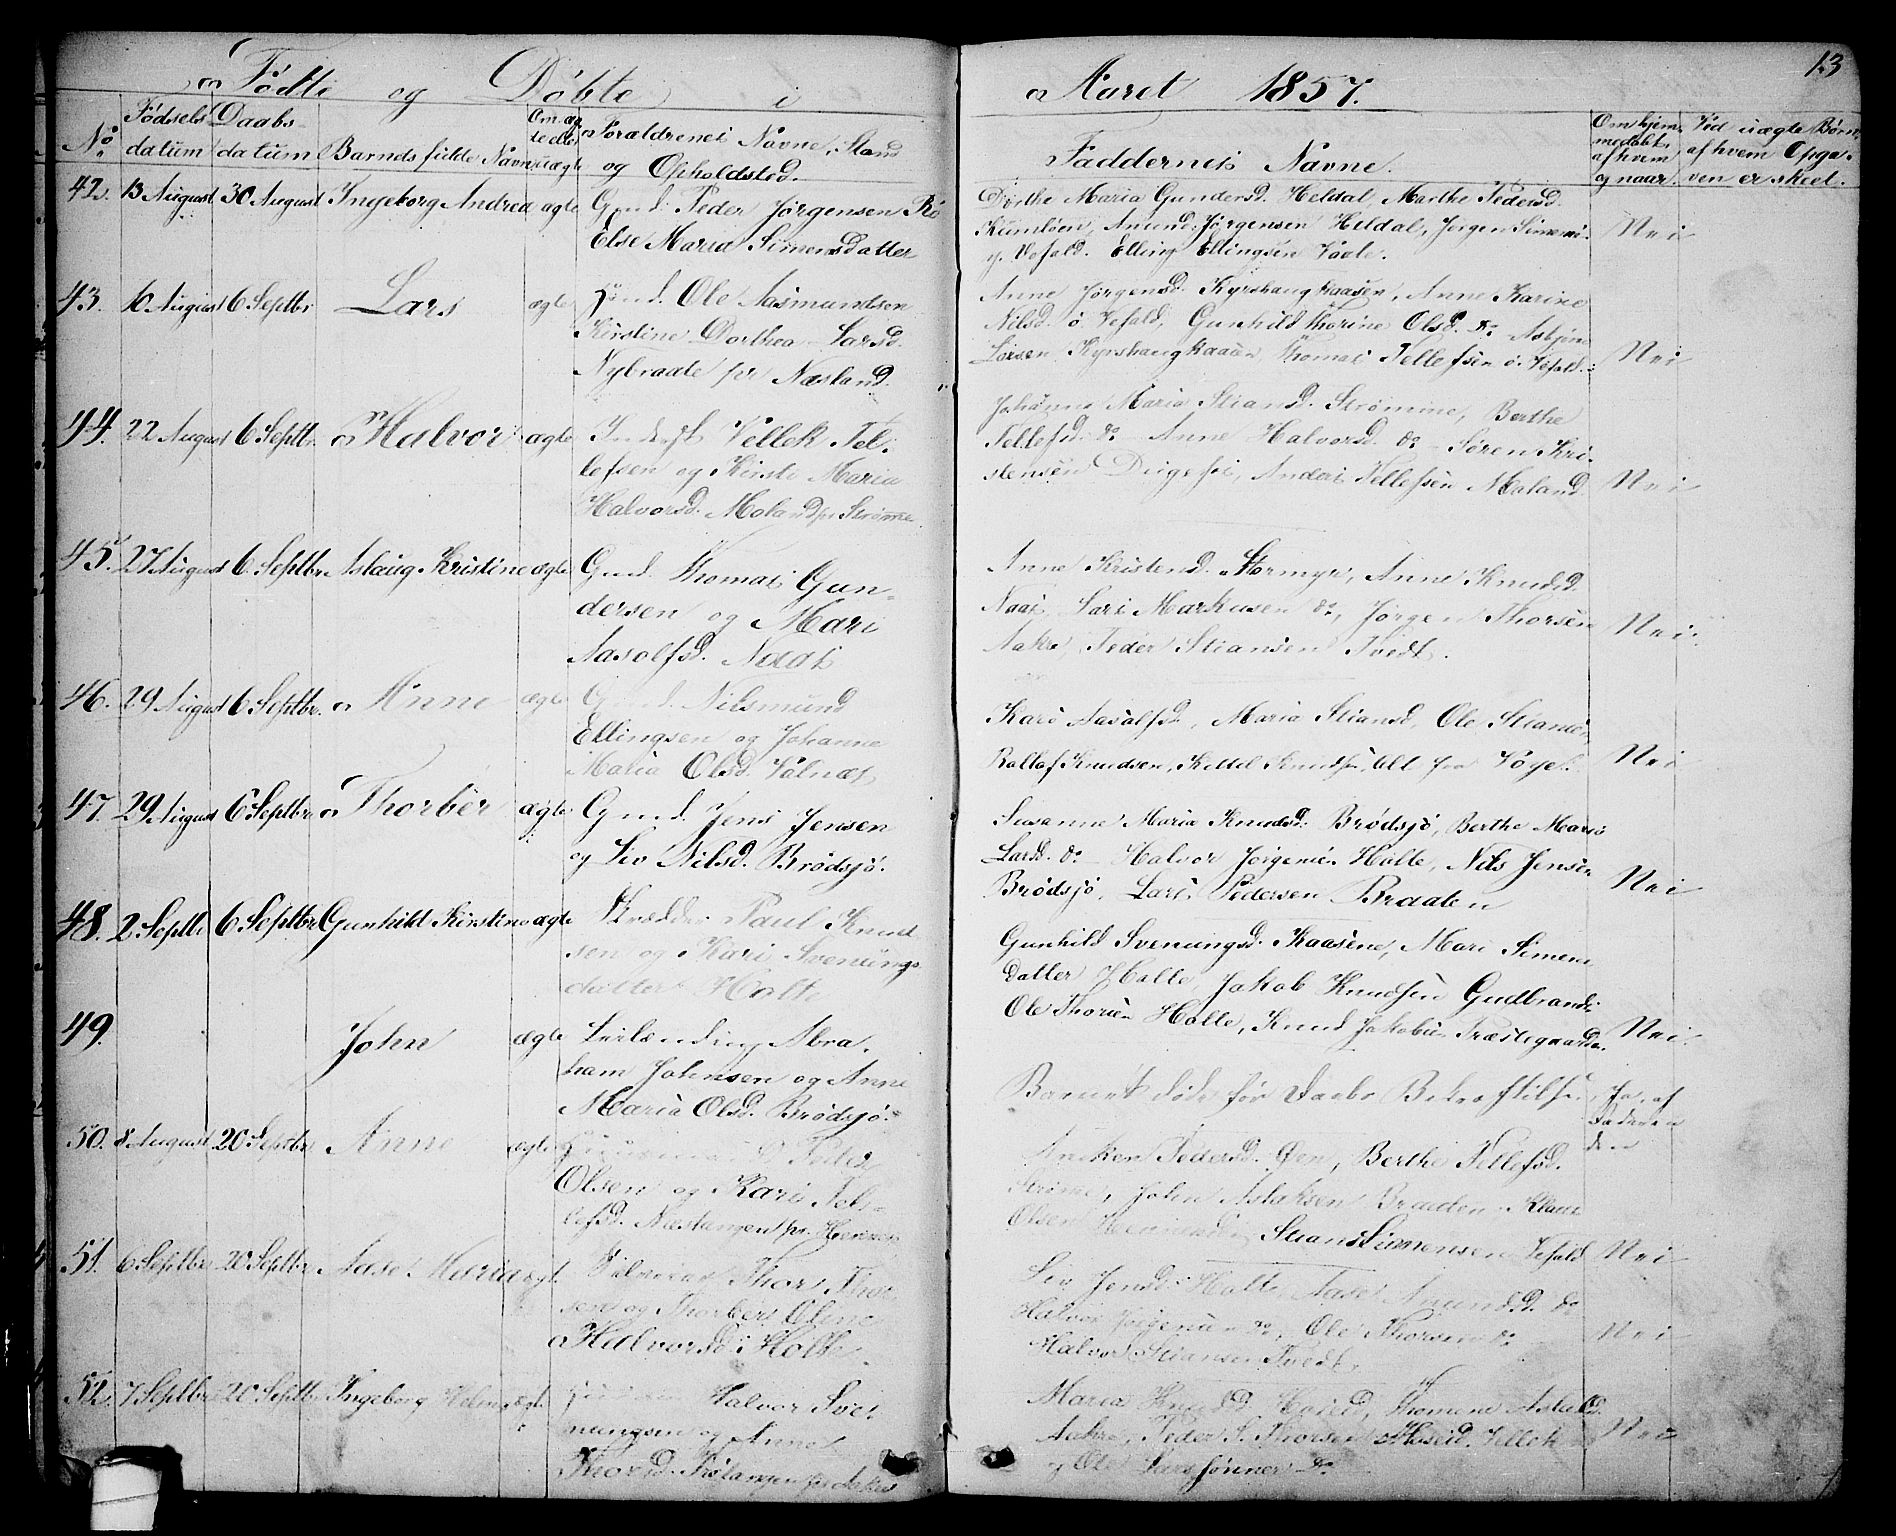 Fødte og Døbte i Aaret 1857. 13
No. Fødsels datum Daabs datum Barnds fulde Navn Om ægte eller uægte Forældrenes Navne, Stand og Opholdsted. Faddernes Navne. Om hjemmedøbt, af hvem og naar. Ved uægte Børn af hvem Opgaven er skeet.
42. 13 August 30 August Ingeborg Andrea ægte Gmd. Peder Jørgensen
Else Maria Simensdatter
Dorthe Maria Gundersd. Heldal, Marthe Pedersd.
Kumleen, Amund Jørgensen Heldal, Jørgen Simensen
Vefald. Elling Ellingsen Vaale.
Nei
43. 10 August 6 Septbr Lars ægte Hmd. Ole Aasmundsen
Kirstine Dorthea Larsd.
Nybraate pr Næsland.
Anne Jørgensd. Kyrshaugkaasen, Anne Karine
Nilsd. ö Vefald, Gunhild Thorine Olsd. do Asbjørn
Larsen Kyrshaugkaasen Thomas Tellefsen ö. Vefald.
Nei
44. 22 August 6 Septbr. Halvor ægte Vellek Tel-
lefsen og Kirsti Maria
Halvorsd. Moland pr Strømme
Johanne Maria Stiansd. Strømme, Berthe
Tellefsd. do Anne Halvorsd. do Søren Kri-
stensen Digesø, Anders Tellefsen Moland
Nei
45. 27 August 6. Septbr Aslaug Kristine ægte Gmd. Thomas Gun-
dersen og Mari
Aasolfsd. Naas
Anne Kristensd. Stormyr, Anne Knudsd.
Naas, Lars Markusen do, Jørgen Thorsen
Aakre, Peder Stiansen Tvedt.
Nei.
46. 29 August 6 Septbr. Anne ægte Gmd. Nilsmund
Ellingsen og Johanne
Maria Olsd. Valnæs
Kari Aasolfsd., Maria Stiansd, Ole Stiansen
Rollof Knudsen, Kittel Knudsen, Alt fra Vøje.
Nei
47. 29 August 6 Septbr Thorbør ægte Gmd. Jens Jensen
og Liv Nilsd. Brødsjø.
Susanne Maria Knudsd. Brødsjø, Berthe Maria
Larsd. do Halvor Jørgensen Holte, Nils Jensen
Brødsjø, Lars Pedersen Braaten
Nei
48. 2 Septbr 6 Septbr Gunhild Kirstine ægte Skrædder Paul Knud-
sen og Kari Svenungs
datter Holte
Gunhild Svenungsd. Kaasene, Mari Simens
datter Holte, Jakob Knudsen Gudbrands
Ole Thorsen Holte, Knud Jakobsen Præstegaarden.
Nei.
49. John ægte Leilænding Abra-
ham Johnsen og Anne
Maria Olsd. Brødsjø.
Barnet døde før Daabs Bekræftelse
Ja, af
Faderen
50. 8 August 20 Septbr Anne ægte Peder
Olsen og Kari Tel-
lefsd. Næstangen pr.
Aneken Pedersd. Øen, Berthe Tellefsd.
Strømme, John Aslaksen Braaden Klaus
Olsen Stian Simensen Vefald
Nei
51. 6 Septbr 20 Septbr Aase Maria ægt. Thor Thor-
sen og Thorber Oline
Halvorsd. Holte.
Liv Jensd. Holte, Aase Amundsd. do
Halvor Jørgensen do, Ole Thorsen do
Halvor Stiansen Tvedt,
Nei
52. 7 Septbr 20 Septbr Ingeborg Helene ægt. Halvor Sve-
nungsen og Anne
Thorsd. Trolangen pr Aakre
Maria Knudsd. Hoseid, Thomene Aslaksd.
Aakre, Peder S. Thorsen Hoseid. Vellek
og Ole Larssønner do
Nei